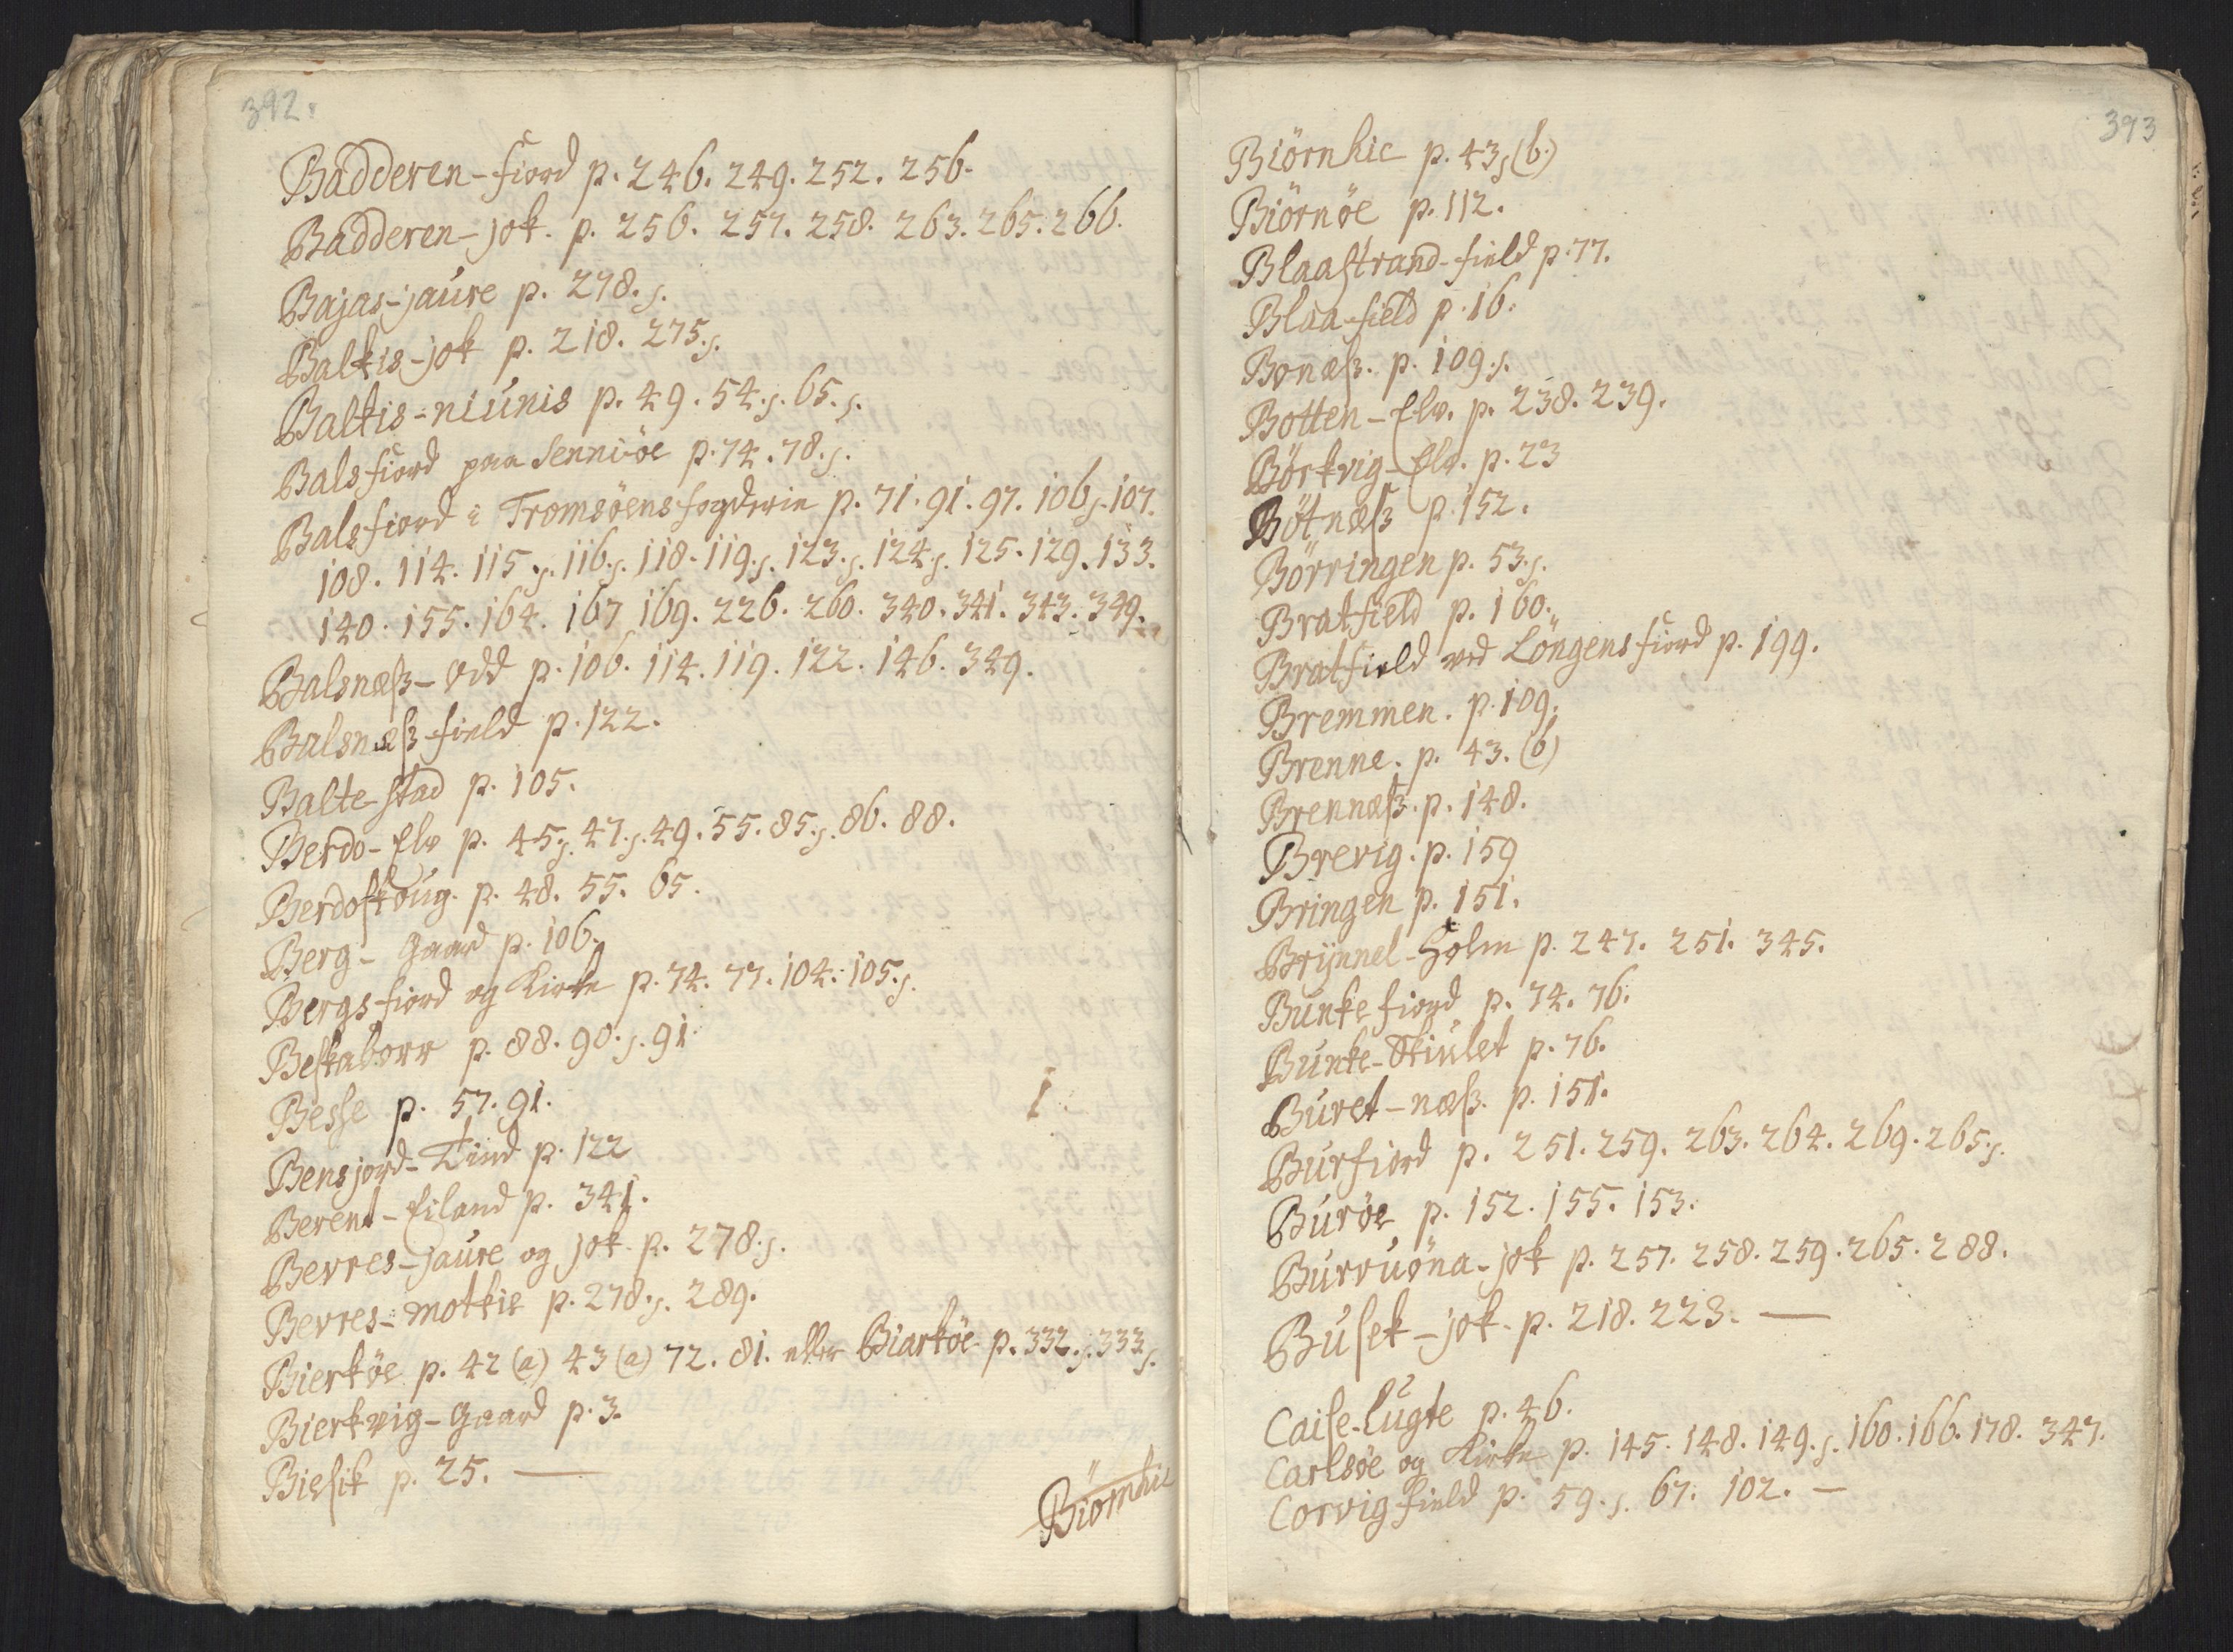 392.
Badderen-fiord p. 246. 249. 252. 256.
Badderen-jok. p. 256. 257. 258. 263. 265. 266.
Bajas-jaure p. 278. s.
Balkis-jok p. 218. 275. s.
Balkis-niunis p. 49. 54. s. 65. s.
Balsfiord paa Senniöe p. 74. 78. s.
Balsfiord i Tromsöens fogderie p. 71. 91. 97. 106 s. 107.
108. 114. 115 s. 116. s. 118. 119. s. 123. s. 124. s. 125. 129. 133.
140. 155. 164. 167 169. 226. 260. 340. 341. 343. 349.
Balsnæß-Odd p. 106. 114. 119. 122. 146. 349.
Balsnæß-field p. 122.
Balte stad p. 105.
Berdo-Elv p. 45. s. 47. s. 49. 55. 85. s. 86. 88.
Berdoskoug. p. 48. 55. 65.
Berg-Gaard p. 106.
Bergs-fiord og Kirke p. 74. 77. 104. 105. s.
Beskaborr p. 88. 90. s. 91.
Besse p. 57. 91.
Bensjord-Tind p. 122
Berent-Eiland p. 341.
Bevres-jaure og jok. p. 278. s.
Bevres-motkie p. 278. s. 289.
Bierköe p. 42 (a) 43 (a) 72. 81. eller Biarköe p. 332. s. 333 s.
Bierkvig-Gaard p. 3.
Biesik p. 25. —
Biörnhic
393
Biörnhic p. 43 s (b.)
Biörnöe p. 112.
Blaastrand-field p. 77.
Blaa-field p. 16.
Bonæß. p. 109. s.
Botten-Elv. p. 238. 239.
Börkvig-Elv. p. 23
Bötnæß p. 152.
Börringen p. 53. s.
Bratfield p. 160.
Bratfield ved Löngens fiord p. 199.
Bremmen. p. 109.
Brenne. p. 43. (b)
Brennæß. p. 148.
Brevig. p. 159
Bringen p. 151.
Brÿnnel-Holm p. 247. 251. 345.
Bunke fiord p. 74. 76.
Bunke-Skiulet p. 76.
Buret-næß. p. 151.
Burfiord p. 251. 259. 263. 264. 269. 265. s.
Buröe p. 152. 155. 153.
Burvuöna-jok p. 257. 258. 259. 265. 288.
Busek-jok. p. 218. 223. —
Caise-lugte p. 46.
Carlsöe og Kirke p. 145. 148. 149. s. 160. 166. 178. 347.
Corvig field p. 59. s. 67. 102. —